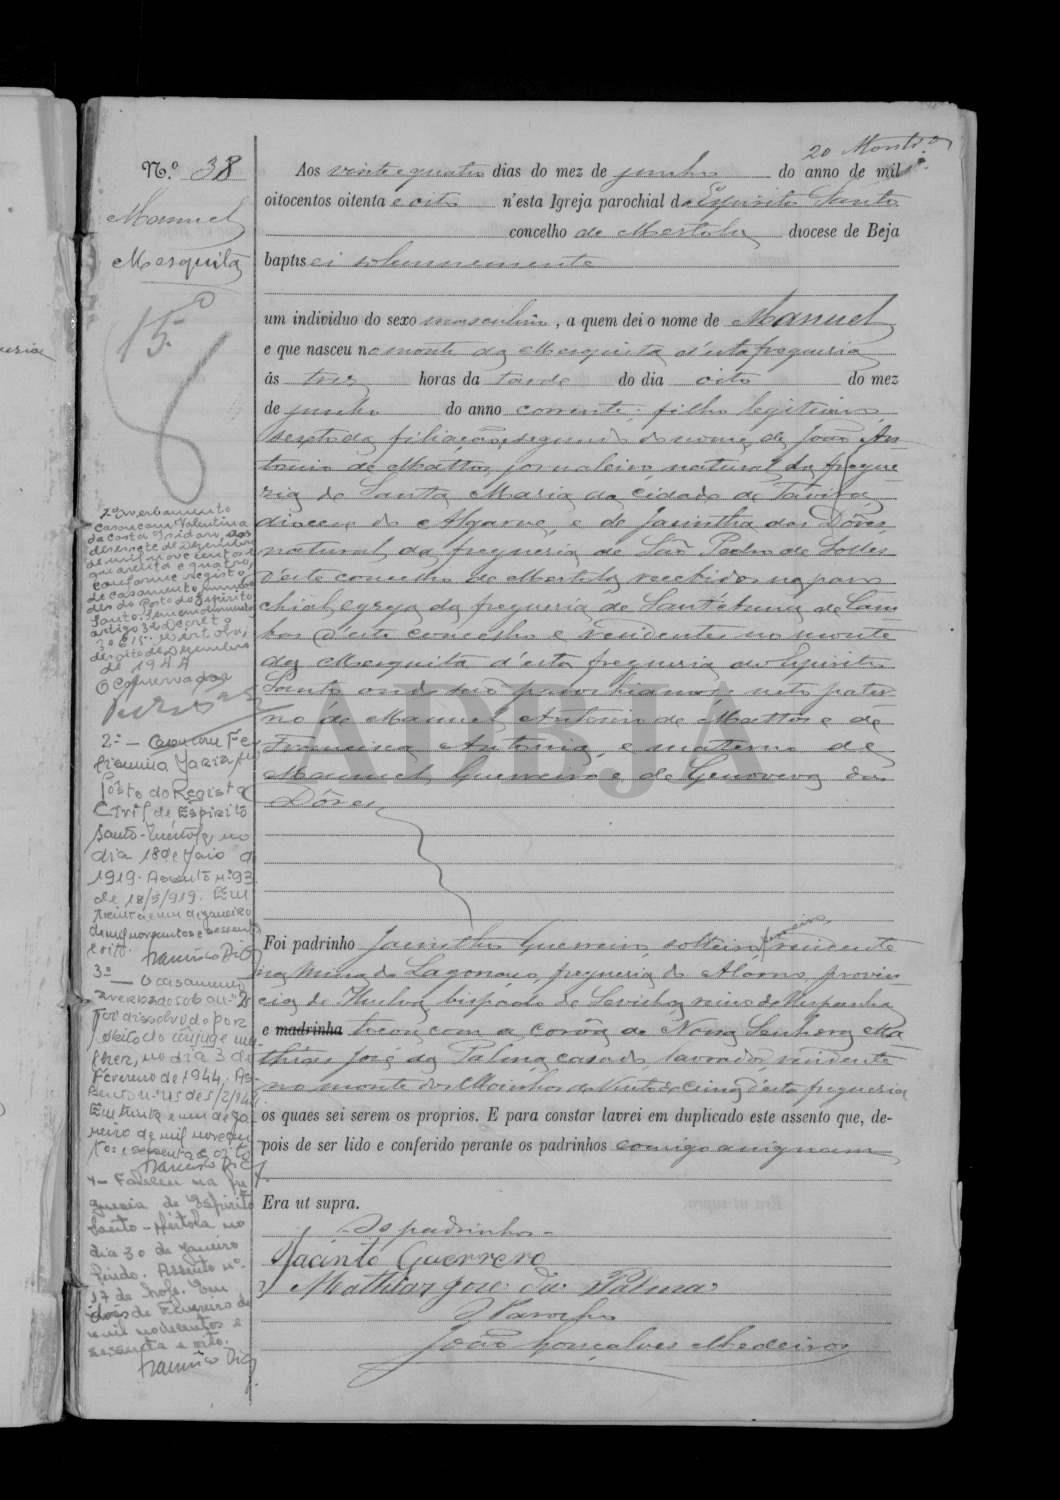 20
N.º 38
Manuel
Mesquita
15º
Aos vinte e quatro dias do mez de junho do anno de mil
oitocentos oitenta e oito n'esta Igreja parochial do Espirito Santo
concelho de Mertola diocese de Beja
baptisei solemnemente
um individuo do sexo masculino, a quem dei o nome de Manuel
e que nasceu no monte da Mesquita d'esta freguesia
ás tres horas da tarde do dia oito do mez
de junho do anno corrente; filho legitimo
sexto da filiação e segundo do nome de João An-
tonio de Mattos, jornaleiro natural da fregue-
zia de Santa Maria da cidade de Tavira
diocese do Algarve, e de Jacintha das Dôres
natural da freguesia de São Pedro de Solles
d'este concelho de Mertola, recebidos na paro-
chial egreja da freguesia de Sant'Anna de Cam-
bas d'este concelho e residentes no monte
da Mesquita d'esta freguesia do Espirito
Santo onde são parochianos; neto pater-
no de Manuel Antonio de Mattos e de
Francisca Antonia, e materno de
Manuel Guerreiro e de Genoveva das
Dôres
Foi padrinho Jacintho Guerreiro, solteiro, residente
na Mina de Lagonaso, freguesia do Alosno, provin-
cia de Huelva, bispado de Sevilha, reino de Hespanha
e madrinha tocou com a corôa de Nossa Senhora Ma-
thias José da Palma, casado, lavrador, residente
no monte dos Moinhos de Vento de Cima d'esta freguesia
os quaes sei serem os proprios. E para constar lavrei em duplicado este assento que, de-
pois de ser lido e conferido perante os padrinhos comigo assignam
Era ut supra.
Os padrinhos
Jacinto Guerrero
Mathias José da Palma
O Parocho
João Gonçalves Medeiros
1º averbamento
Casou com Valentina
da Costa Isidoro, aos
dezessete de Dezembro
de mil novecentos e
quarenta e quatro,
conforme registo
de casamento número
dez do Posto do Espirito
Santo.
artigo 3º Decreto
Mertola,
dezoito de Dezembro
de 1944
O Conservador
2º — Casou com Fe-
Maria, no
Posto do Registo
Civil de Espirito
Santo-Mértola, no
dia 18 de Maio de
1919. Assento nº 93
de 18/5/919. Em
trinta e um de janeiro
de mil novecentos e sessenta
e oito.
Francisco Dias
3º — O casamento
averbado sob o nº 2
foi dissolvido por
óbito do cônjuge mu-
lher, no dia 3 de
Fevereiro de 1944. As-
sento nº 115 de 5/2/944
Em trinta e um de Ja-
neiro de mil novecen-
tos e sessenta e oito
Francisco Dias
4 — Faleceu na fre-
guesia de Espirito
Santo - Mértola no
dia 30 de Janeiro
findo. Assento nº
17 de hoje. Em
dois de Fevereiro de
mil novecentos e
sessenta e oito.
Francisco Dias
ADBJA